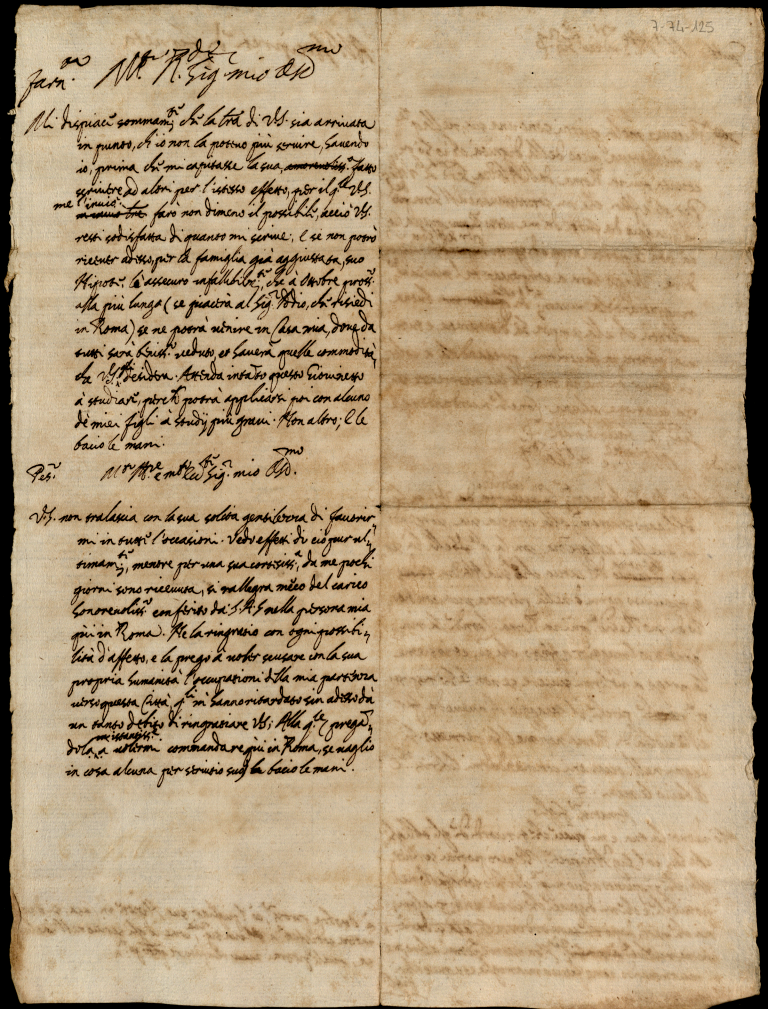 7-74-125
Farn.
R. Sig. mio
Mi dispiace sommam.te che la lra di V.S. sia arrivata
in punto, ch'io non la potevo più servire, havendo
io, prima che mi capitasse la sua, amorevoliss. fatto
scrivere ad altri per l'istesso effetto, per il q.le V.S.
me l'invia. farò non dimeno il possibile, acciò V.S.
resti sodisfatta di quanto mi scrive, e se non potrò
ricever adesso, per la famiglia già aggiustata, suo
Nipote, l'assecuro infallibilm.te, che à Ottobre pross.
alla più lunga (se piacerà al Sig.r Iddio, che risiedi
in Roma) se ne potrà venire in Casa mia, dove da
tutti sarà beniss. veduto, et haverà quelle commodità,
che V.S. desidera. Attenda intato questo Giovinetto
à studiare, perche potrà applicarsi poi con alcuno
de miei figli à studij più gravi. Non altro; e le
bacio le mani.
Pes.
Sig. mio
V.S. non tralascia con la sua solita gentilezza di favorir-
mi in tutte l'occasioni. Vedo effetti di ciò pur ul-
timam.te, mentre per una sua cortesiss.a, da me pochi
giorni sono ricevuta, si rallegra meco del carico
honorevoliss. conferito da S.A.S nella persona mia
quì in Roma. Ne la ringratio con ogni possibi-
lità d'affetto, e la prego à voler scusare con la sua
propria humanità l'occupationi della mia partenza
verso questa Città, q.li m'hanno ritardato sin adesso da
un tanto debito di ringratiare V.S; Alla q.le pregan-
dola instantiss.te a volermi commandare quì in Roma, se vaglio
in cosa alcuna per servitio suo, le bacio le mani.